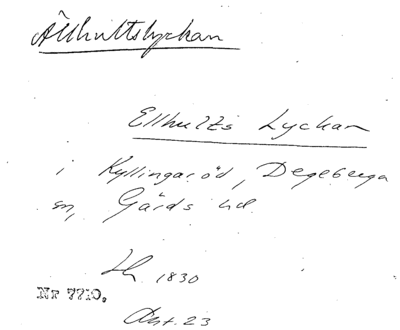 Ällhultslyckan
Ellhults Lyckan
i Kyllingaröd, Degeberga
sn, Gärds hd
1830
Nr 7710.
Akt. 23